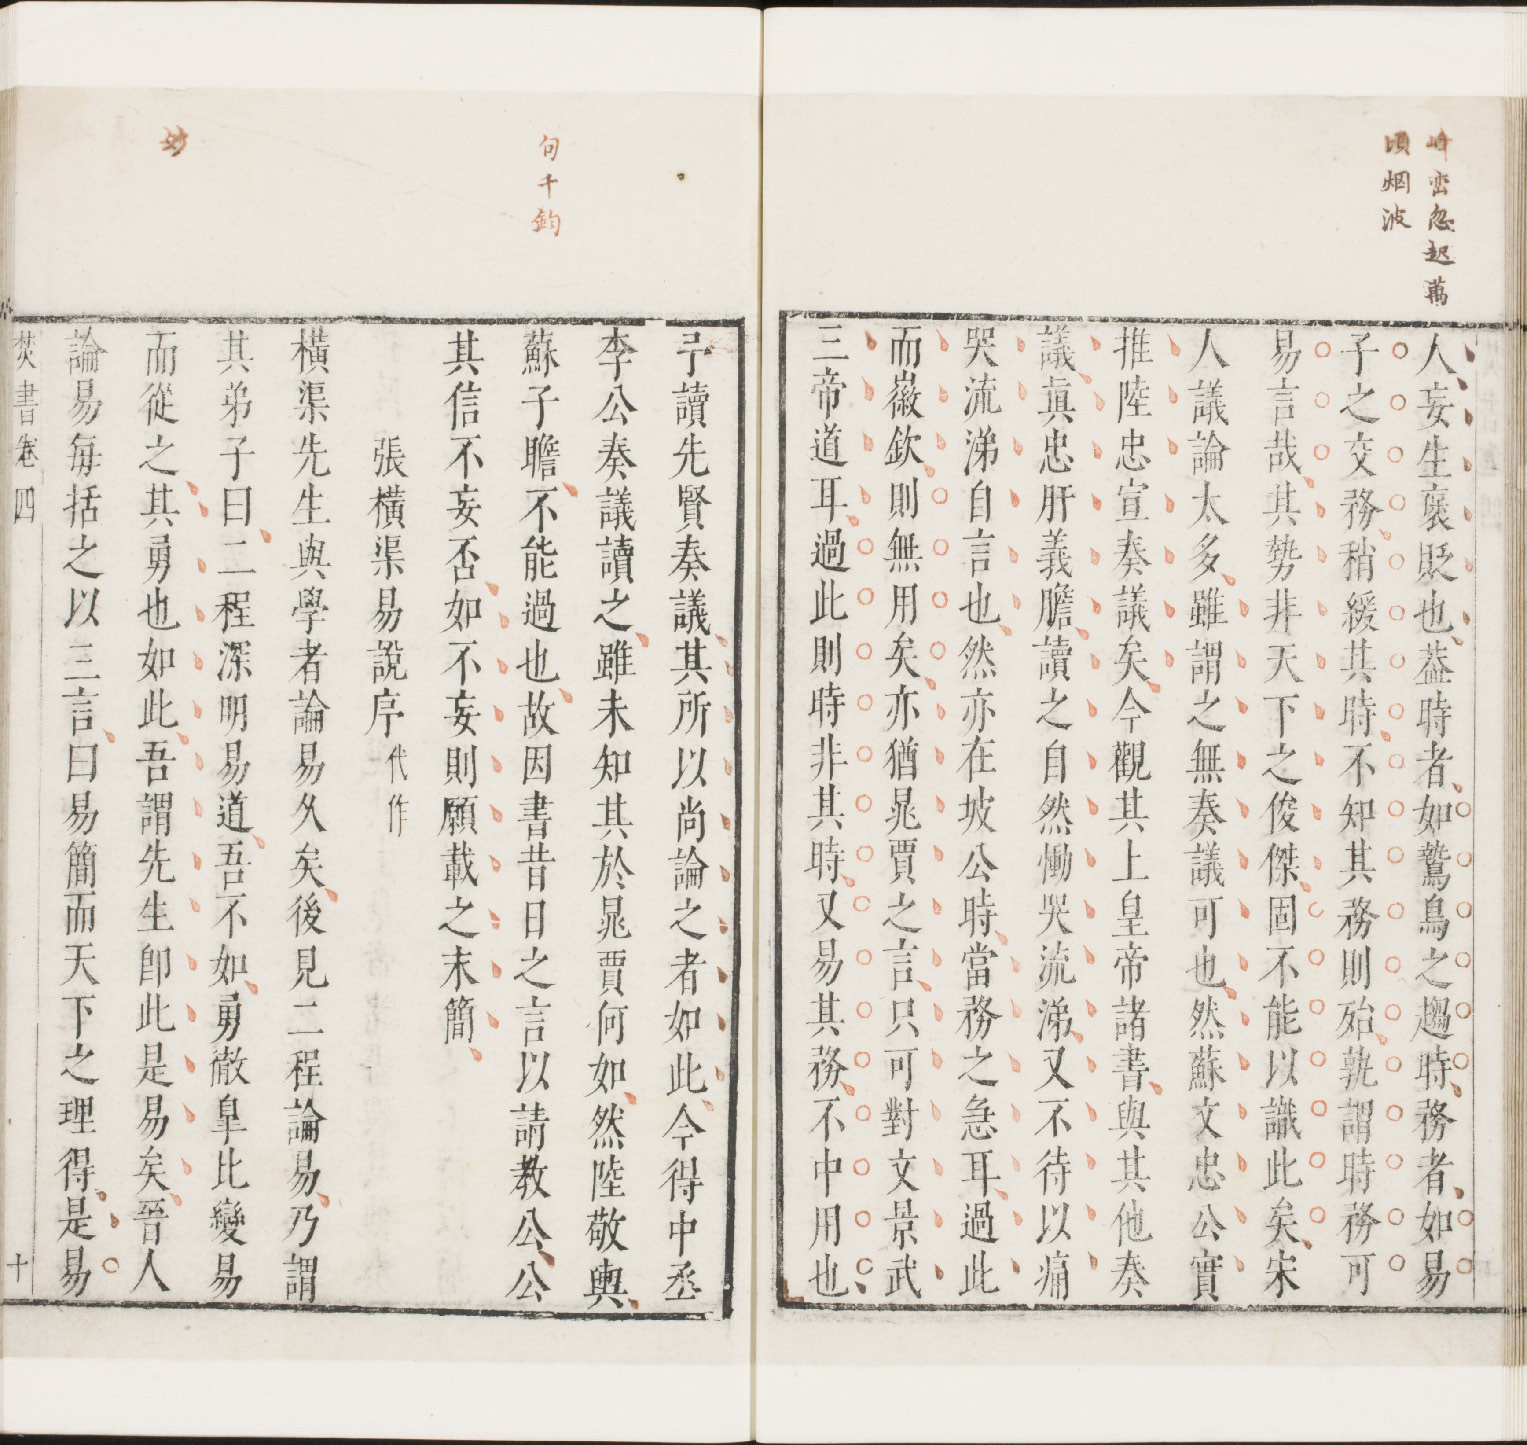 峰巒忽起萬
頃烟波
人妄生褒貶也葢時者如鷙鳥之趨時務者如易
子之交務稍緩其時不知其務則殆孰謂時務可
易言哉其勢非天下之俊傑固不能以識此矣宋
人議論太多雖謂之無奏議可也然蘇文忠公實
推陸忠宣奏議矣今觀其上皇帝諸書與其他奏
議眞忠肝義膽讀之自然慟哭流涕又不待以痛
哭流涕自言也然亦在坡公時當務之急耳過此
而徽欽則無用矣亦猶晁賈之言只可對文景武
三帝道耳過此則時非其時又易其務不中用也
句千鈞
予讀先賢奏議其所以尚論之者如此今得中丞
李公奏議讀之雖未知其於晁賈何如然陸敬輿
蘇子瞻不能過也故因書昔日之言以請教公公
其信不妄否如不妄則願載之末簡
張橫渠易說序 代作
橫渠先生與學者論易久矣後見二程論易乃謂
其弟子曰二程深明易道吾不如勇撤皐比變易
而從之其勇也如此吾謂先生卽此是易矣晉人
妙
論易每括之以三言曰易簡而天下之理得是易
焚書卷四
十